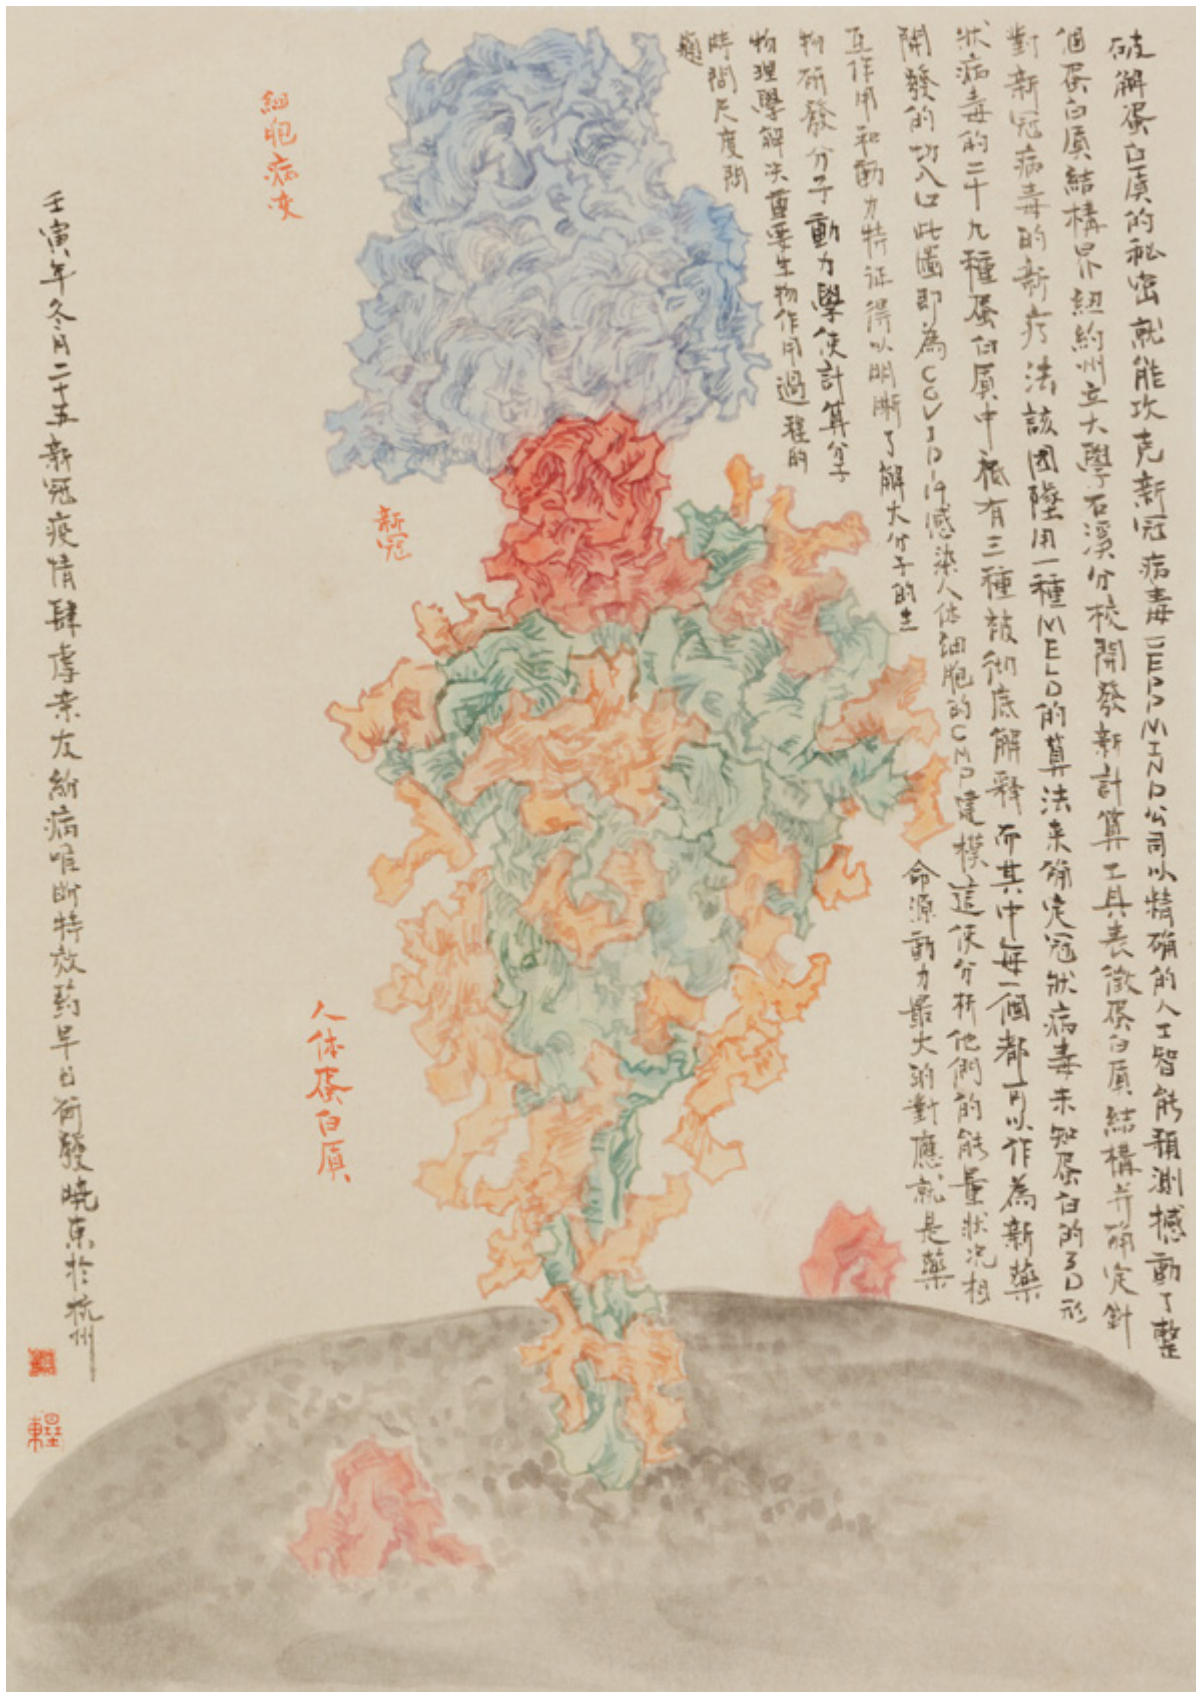 破解蛋白質的秘密就能攻克新冠病毒DEEPMIND公司以精确的人工智能預測撼動了整
個蛋白質結構界紐約州立大學石溪分校開發新計算工具表徵蛋白質結構并确定針
對新冠病毒的新疗法該團隊用一種MELD的算法来确定冠狀病毒未知蛋白的3D形
狀病毒的二十九種蛋白質中衹有三種被彻底解釋而其中每一個都可以作為新藥
開發的切入口此圖即為COVID-19感染人体细胞的CMD建模這使分析他們的能量狀况相
互作用和動力特征得以明晰了解大分子的生
命源動力最大的對應就是藥
物研發分子動力學使計算分子
物理學解决重要生物作用過程的
時間尺度問
題
細胞病变
新冠
人体蛋白質
壬寅年冬月二十五新冠疫情肆虐亲友紛病唯盼特效药早日研發曉東於杭州